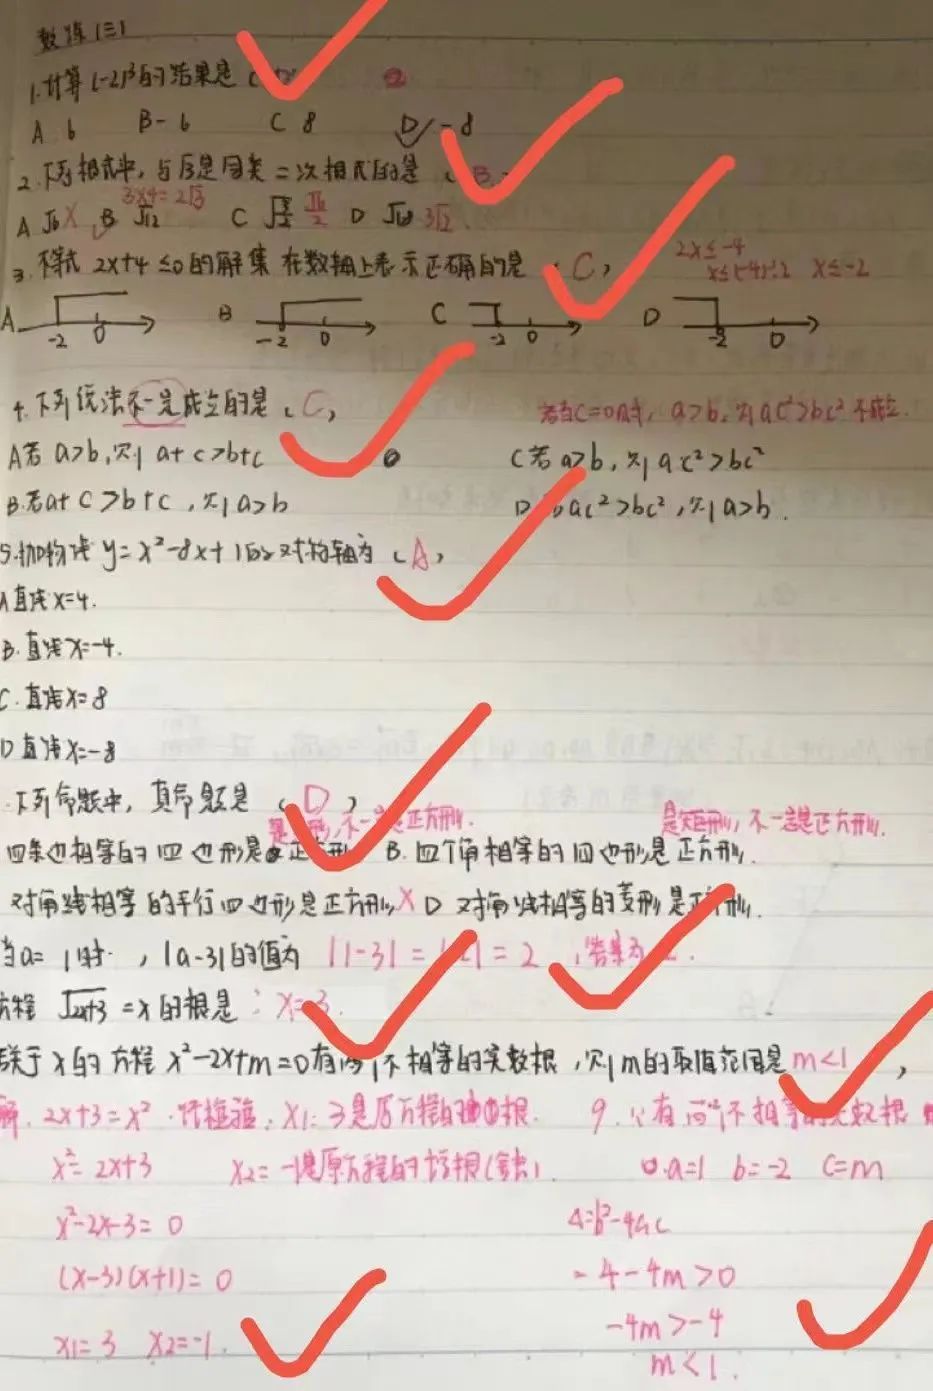 数练(三)
1.计算(-2)³的结果是(
A 6 B -6 C 8 D -8
2.下列根式中,与√3是同类二次根式的是(B)
3×4=2√3
A √6 X B √12 C √(3/2) √6/2 D √18 3√2
3.不等式 2x+4≤0的解集在数轴上表示正确的是(C)
2x≤-4
x≤(-4)÷2 x≤-2
A -2 0 B -2 0 C -2 0 D -2 0
4.下列说法不一定成立的是(C)
当C=0时,a>b,则ac²>bc²不成立.
A若a>b,则a+c>b+c C若a>b,则ac²>bc²
B.若a+c>b+c,则a>b D ac²>bc²,则a>b.
5.抛物线y=x²-8x+1的对称轴为(A)
A直线x=4.
B.直线x=-4.
C.直线x=8
D直线x=-8
.下列命题中,真命题是(D)
形,不一定是正方形. 是矩形,不一定是正方形.
四条边相等的四边形是正方形 B.四个角相等的四边形是正方形.
对角线相等的平行四边形是正方形X D 对角线相等的菱形是正方形.
当a=1时,|a-3|的值为 |1-3|=|-2|=2 ,答案为2.
方程√2x+3=x的根是:x=3.
关于x的方程x²-2x+m=0有两个不相等的实数根,则m的取值范围是m<1,
解.2x+3=x² 经检验:x1=3是原方程的根. 9.∵有两个不相等的实数根
x²=2x+3 x2=-1是原方程的增根(舍去). a=1 b=-2 c=m
x²-2x-3=0 Δ=b²-4ac
(x-3)(x+1)=0 =4-4m>0
-4m>-4
x1=3 x2=-1.
m<1.